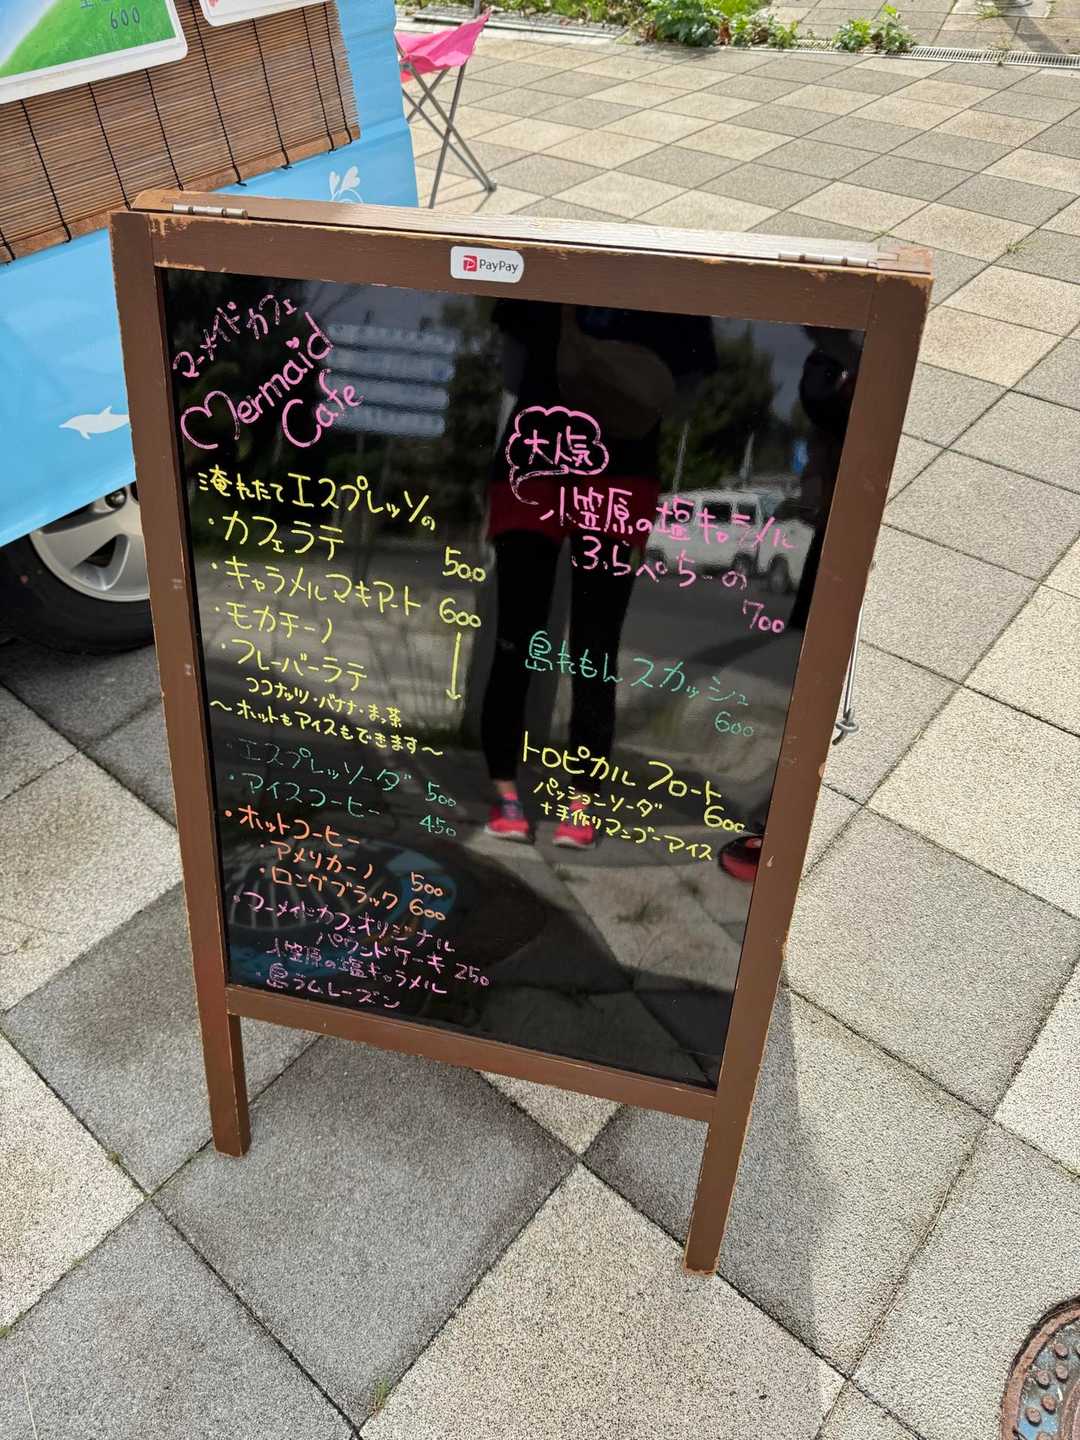 600
PayPay
マーメイドカフェ
Mermaid
Cafe
淹れたてエスプレッソの
・カフェラテ 500
・キャラメルマキアート 600
・モカチーノ
・フレーバーラテ
ココナッツ・バナナ・まっ茶
～ホットもアイスもできます～
・エスプレッソーダ 500
・アイスコーヒー 450
・ホットコーヒー
・アメリカーノ 500
・ロングブラック 600
・マーメイドカフェオリジナル
パウンドケーキ 250
小笠原の塩キャラメル
・島ラムレーズン
大人気
小笠原の塩キャラメル
ふらぺちーの
700
島れもんスカッシュ
600
トロピカルフロート
パッションソーダ 600
+手作りマンゴーアイス